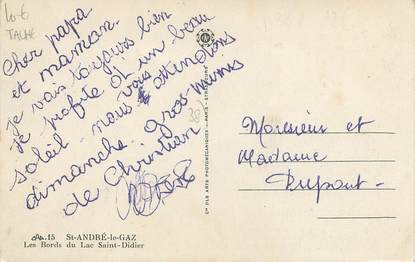 10-6
TACHÉ
Cher papa
et maman.
je vais toujours bien
je profite d'un beau
soleil. nous vous attendons
dimanche. gros mimis
de Christian
38
Cie DES ARTS PHOTOMÉCANIQUES - PARIS - STRASBOURG
Monsieur et
Madame
Dupont
15 St-ANDRÉ-le-GAZ
Les Bords du Lac Saint-Didier